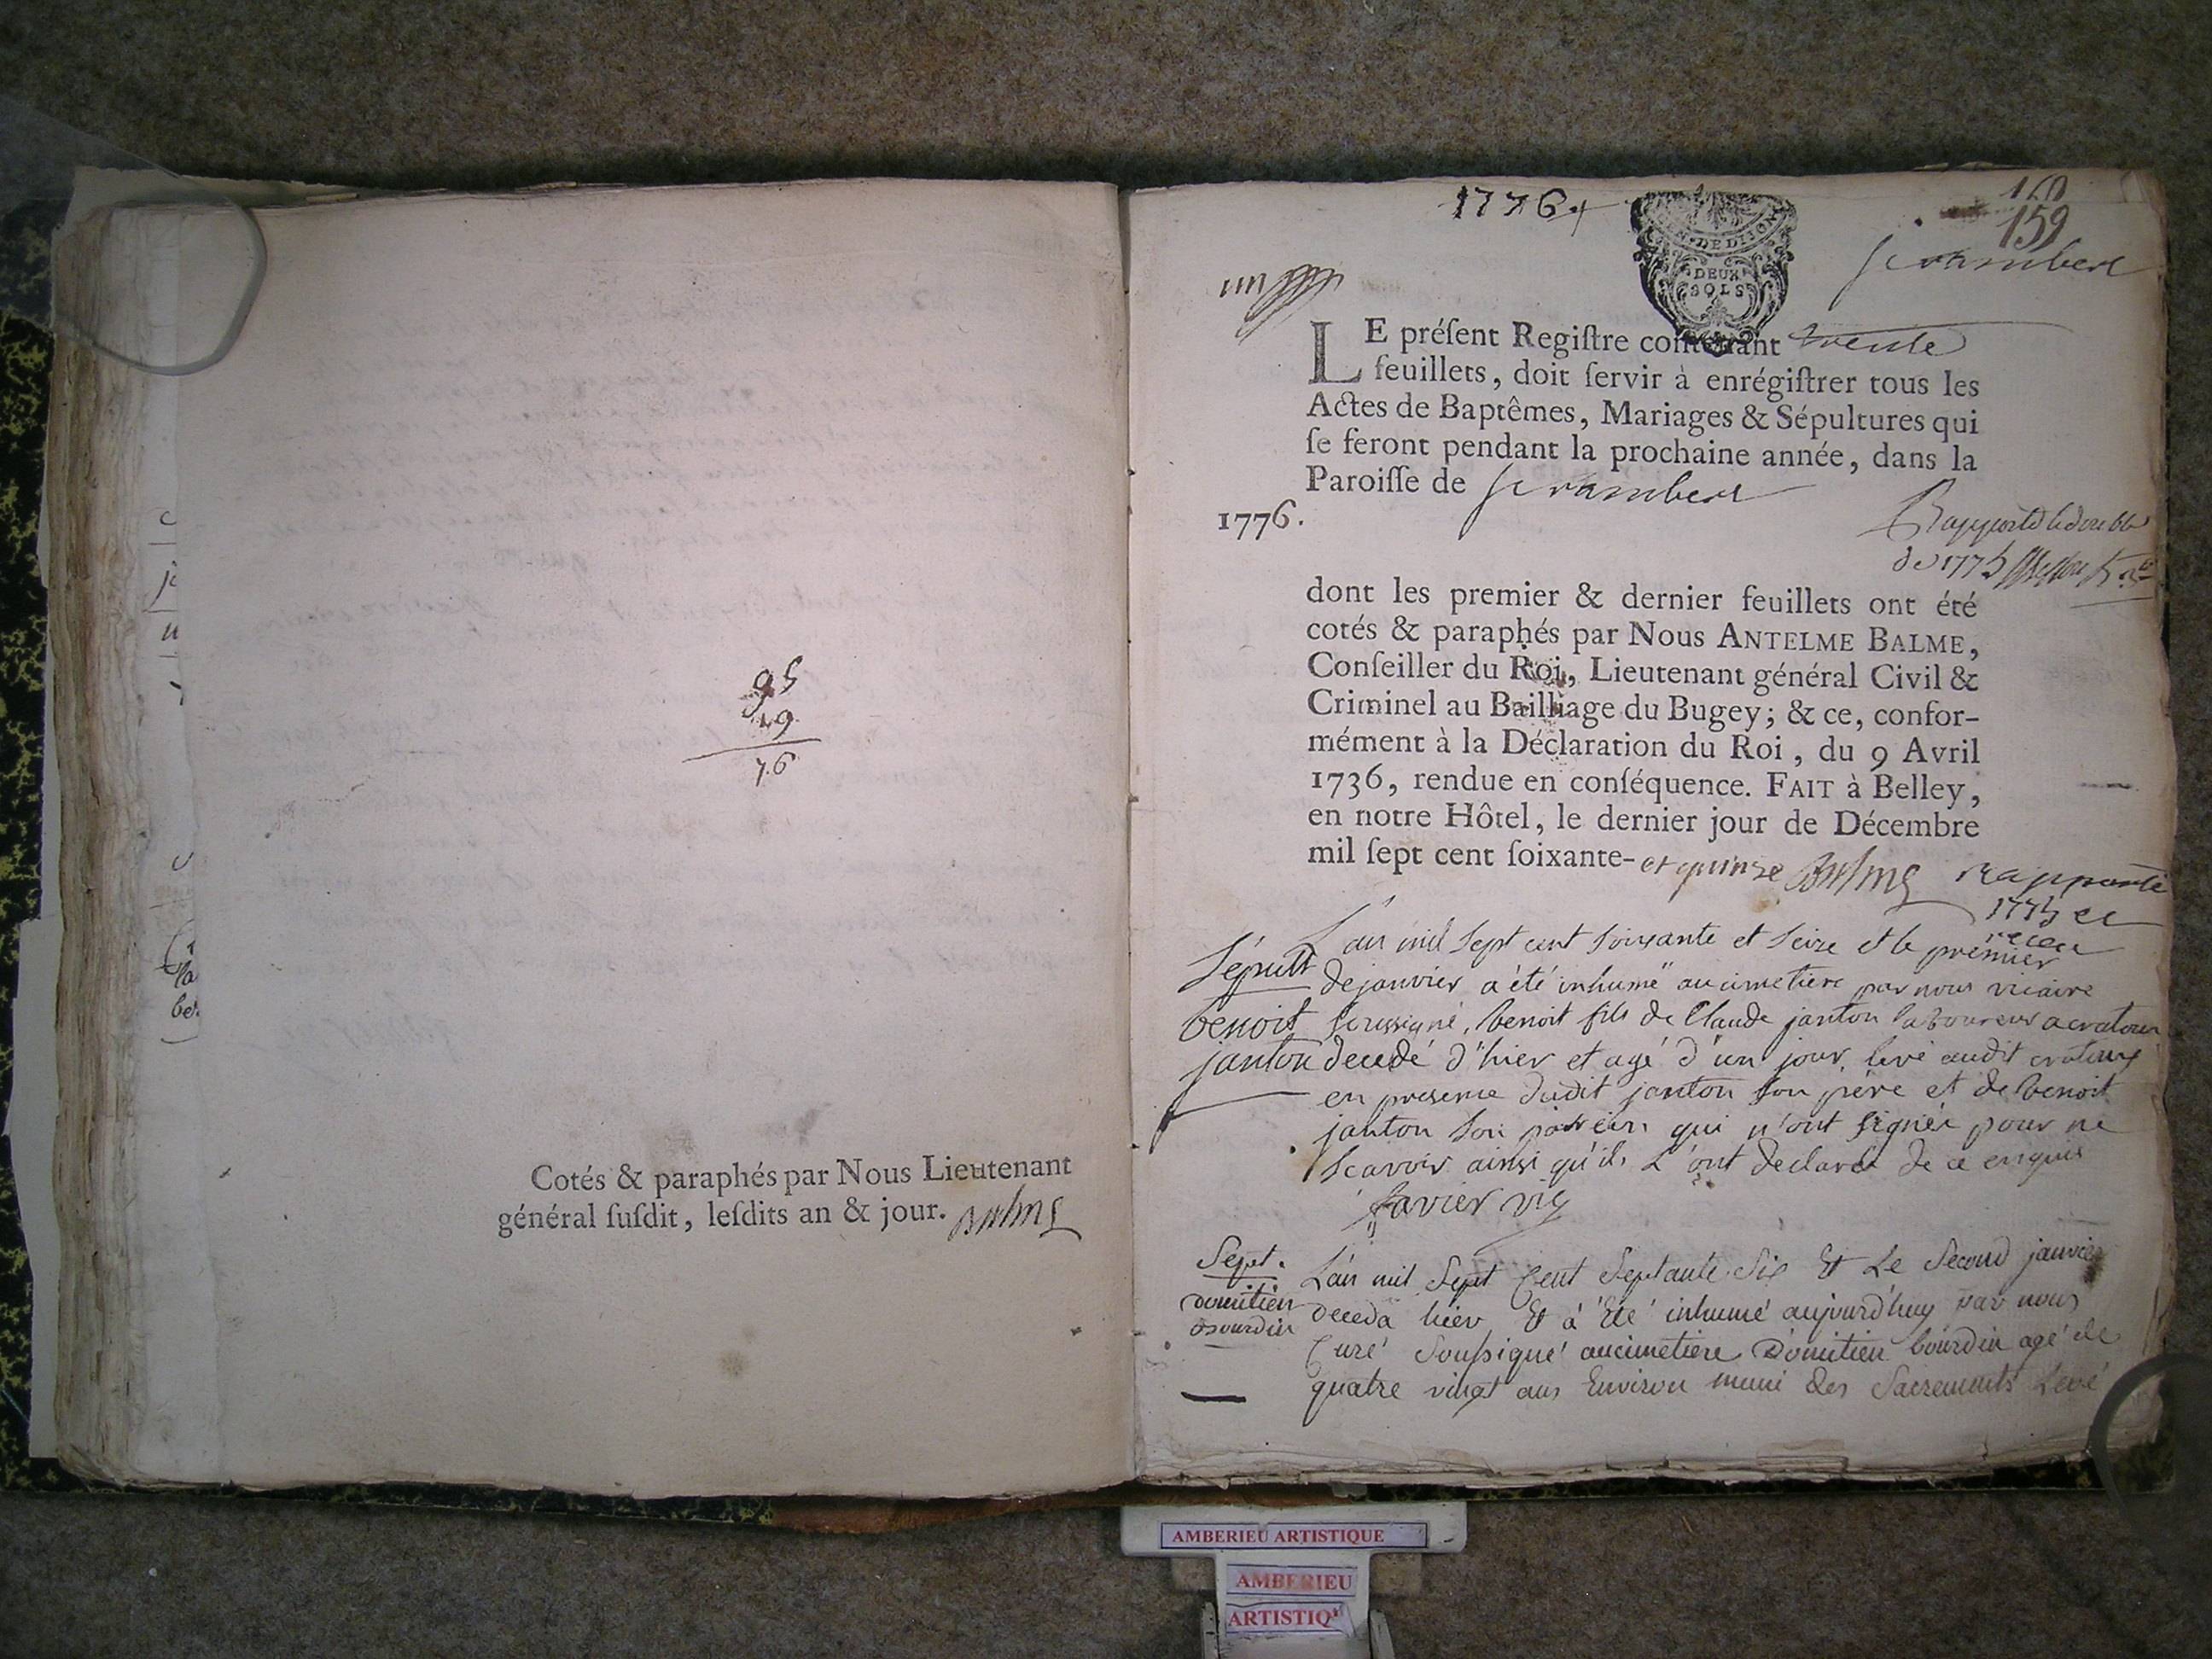 95
19
76
Cotés & paraphés par Nous Lieutenant
général ſuſdit, leſdits an & jour. Balme
1776.
159
DE DIJON
DEUX
SOLS
St rambert
un
LE préſent Regiſtre contenant trente
feuillets, doit ſervir à enrégiſtrer tous les
Actes de Baptêmes, Mariages & Sépultures qui
ſe feront pendant la prochaine année, dans la
Paroiſſe de St rambert
1776.
Rapporté le double
de 1775
dont les premier & dernier feuillets ont été
cotés & paraphés par Nous ANTELME BALME,
Conſeiller du Roi, Lieutenant général Civil &
Criminel au Bailliage du Bugey; & ce, confor-
mément à la Déclaration du Roi, du 9 Avril
1736, rendue en conſéquence. FAIT à Belley,
en notre Hôtel, le dernier jour de Décembre
mil ſept cent ſoixante- et quinze Balme
Rapporté
1775 et
Sépult
benoit
janton
L'an mil sept cent soixante et seize et le premier
de janvier a été inhumé au cimetiere par nous vicaire
soussigné, benoit fils de Claude janton laboureur a
decedé d'hier et agé d'un jour, levé audit
en presence dudit janton son père et de benoit
janton son parein qui n'ont signés pour ne
scavoir ainsi qu'ils l'ont declaré de ce enquis
favier vic
Sept.
domitien
bourdin
L'an mil Sept Cent Septante Six Et Le Second janvier
deceda hier Et à Eté inhumé aujourd'huy par nous
Curé Soussigné au cimetiere Domitien bourdin agé de
quatre vingt ans Environ muni des Sacrements Levé
AMBERIEU ARTISTIQUE
AMBERIEU
ARTISTIQ